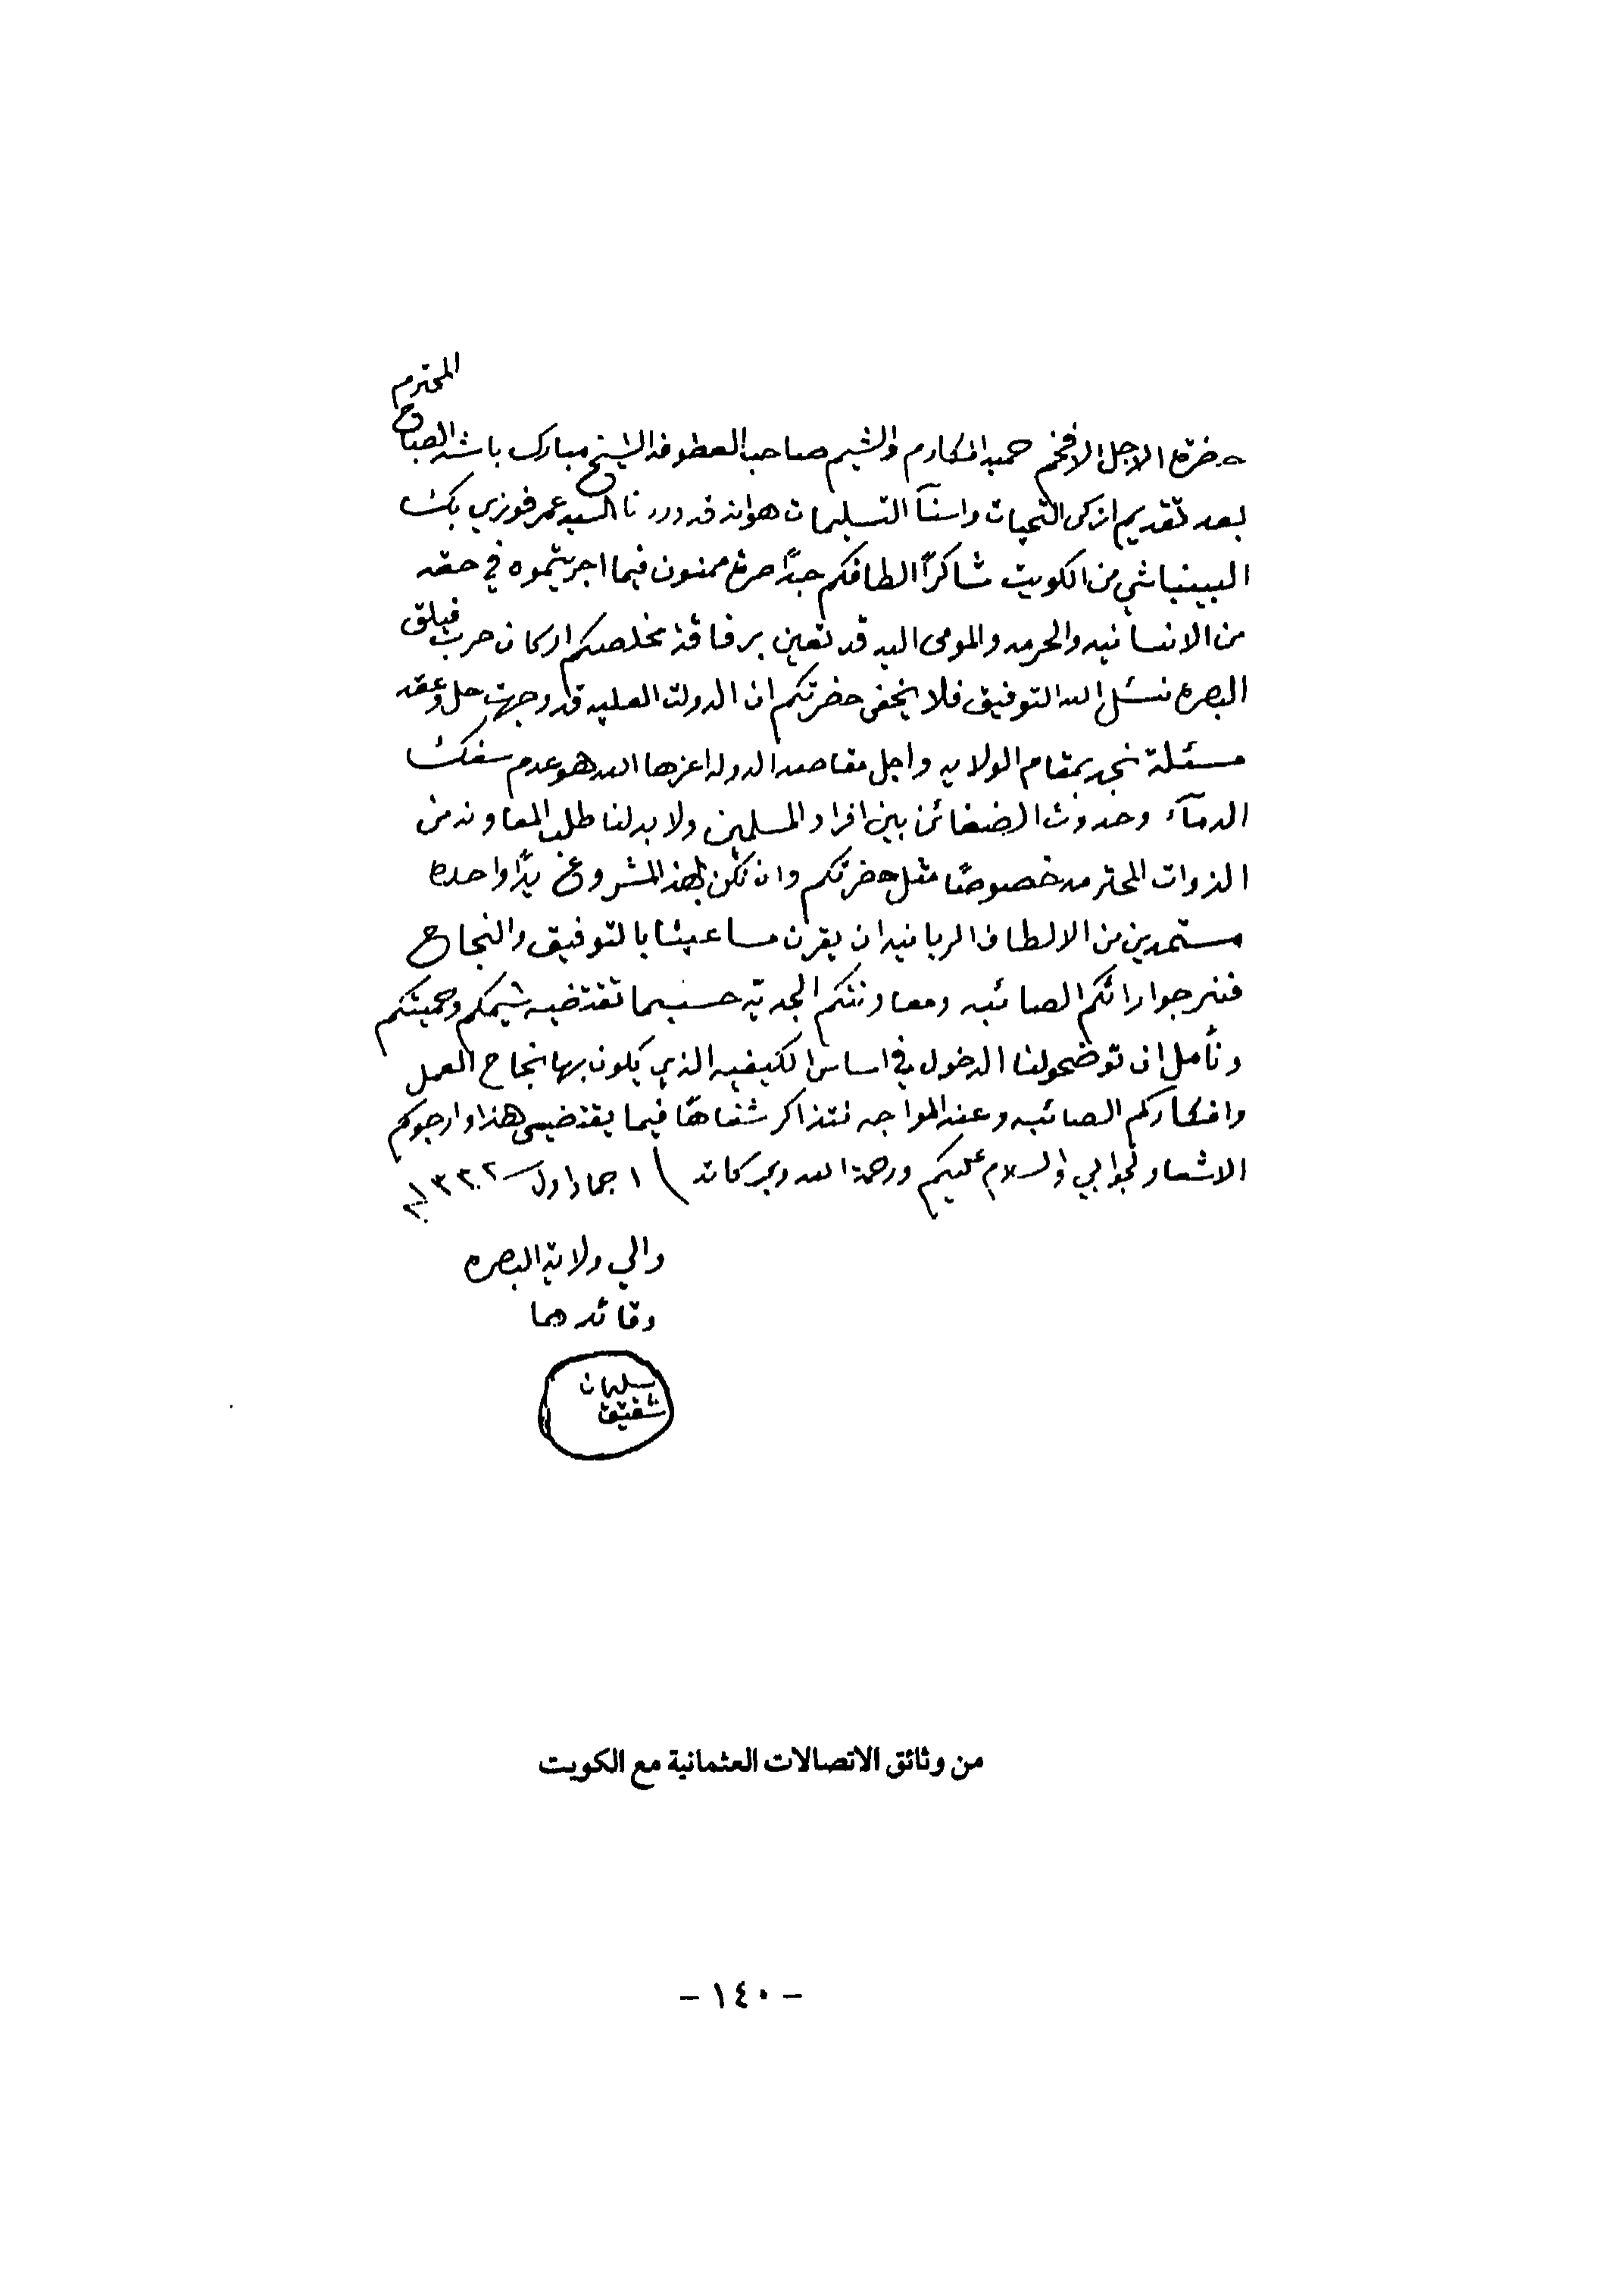 المحترم
حضرة الاجل الافخم حميد المكارم والشيم صاحب العطوفه الشيخ مبارك باشه الصباح
بعد تقديم ازكى التحيات واسنآ التسليمات هوانه قد وردنا السيد عمر فوزي بك
البينباشي من الكويت شاكراً الطافكم جداً صرنا ممنون فيما اجريتموه في حقه
من الانسانيه والحرمه والمومى اليه قد تعين برفاقة مخلصكم اركان حرب فيلق
البصره نسئل الله التوفيق فلا يخفى حضرتكم ان الدولت العليه قد وجهت حل وعقد
مسئلة نجد بمقام الولايه واجل مقاصد الدوله اعزها الله هو عدم سفك
الدمآء وحدوث الضغائن بين افراد المسلمين ولا بد لنا طلب المعاونه من
الذوات المحترمه خصوصاً مثل حضرتكم وان نكن بهذ المشروع يداً واحده
مستمدين من الالطاف الربانيه ان يقرن مساعينا بالتوفيق والنجاح
فنرجوا رائكم الصائبه ومعاونتكم الجديه حسبما تقتضيه شيمكم وحميتكم
ونأمل ان توضحولنا الدخول في اساس الكيفيه الذي يكون بها نجاح العمل
وافكاركم الصائبه وعند المواجه نتذاكر شفاهاً فيما يقتضي هذا وارجوكم
الاشعار لجوابي والسلام عليكم ورحمة الله وبركاته ١ جماد اول ١٣٣٢
والي ولاية البصره
وقائدها
سليمان
شفيق
من وثائق الاتصالات العثمانية مع الكويت
- ١٤٠ -